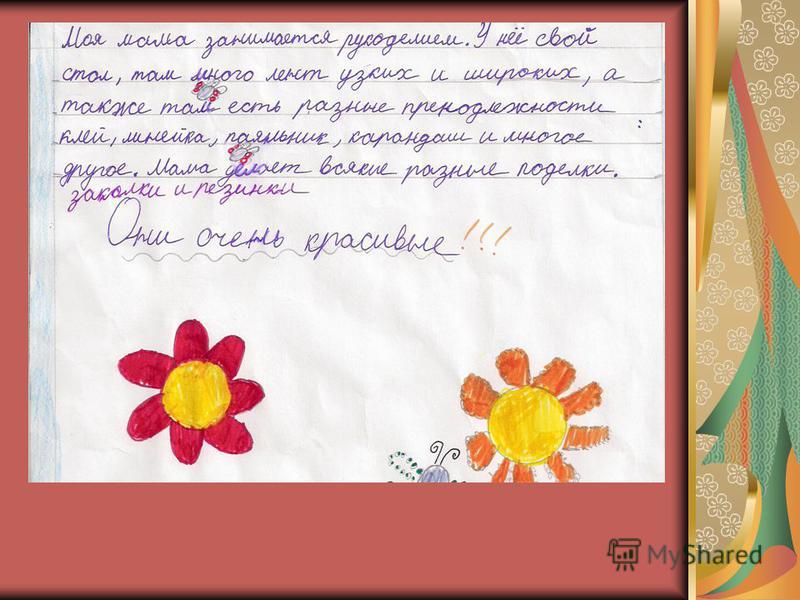 Моя мама занимается рукоделием. У неё свой
стол, там много лент узких и широких, а
также там есть разные пренодлежности :
клей, линейка, паяльник, карандаш и многое
другое. Мама делает всякие разные поделки.
заколки и резинки
Они очень красивые!!!
MyShared